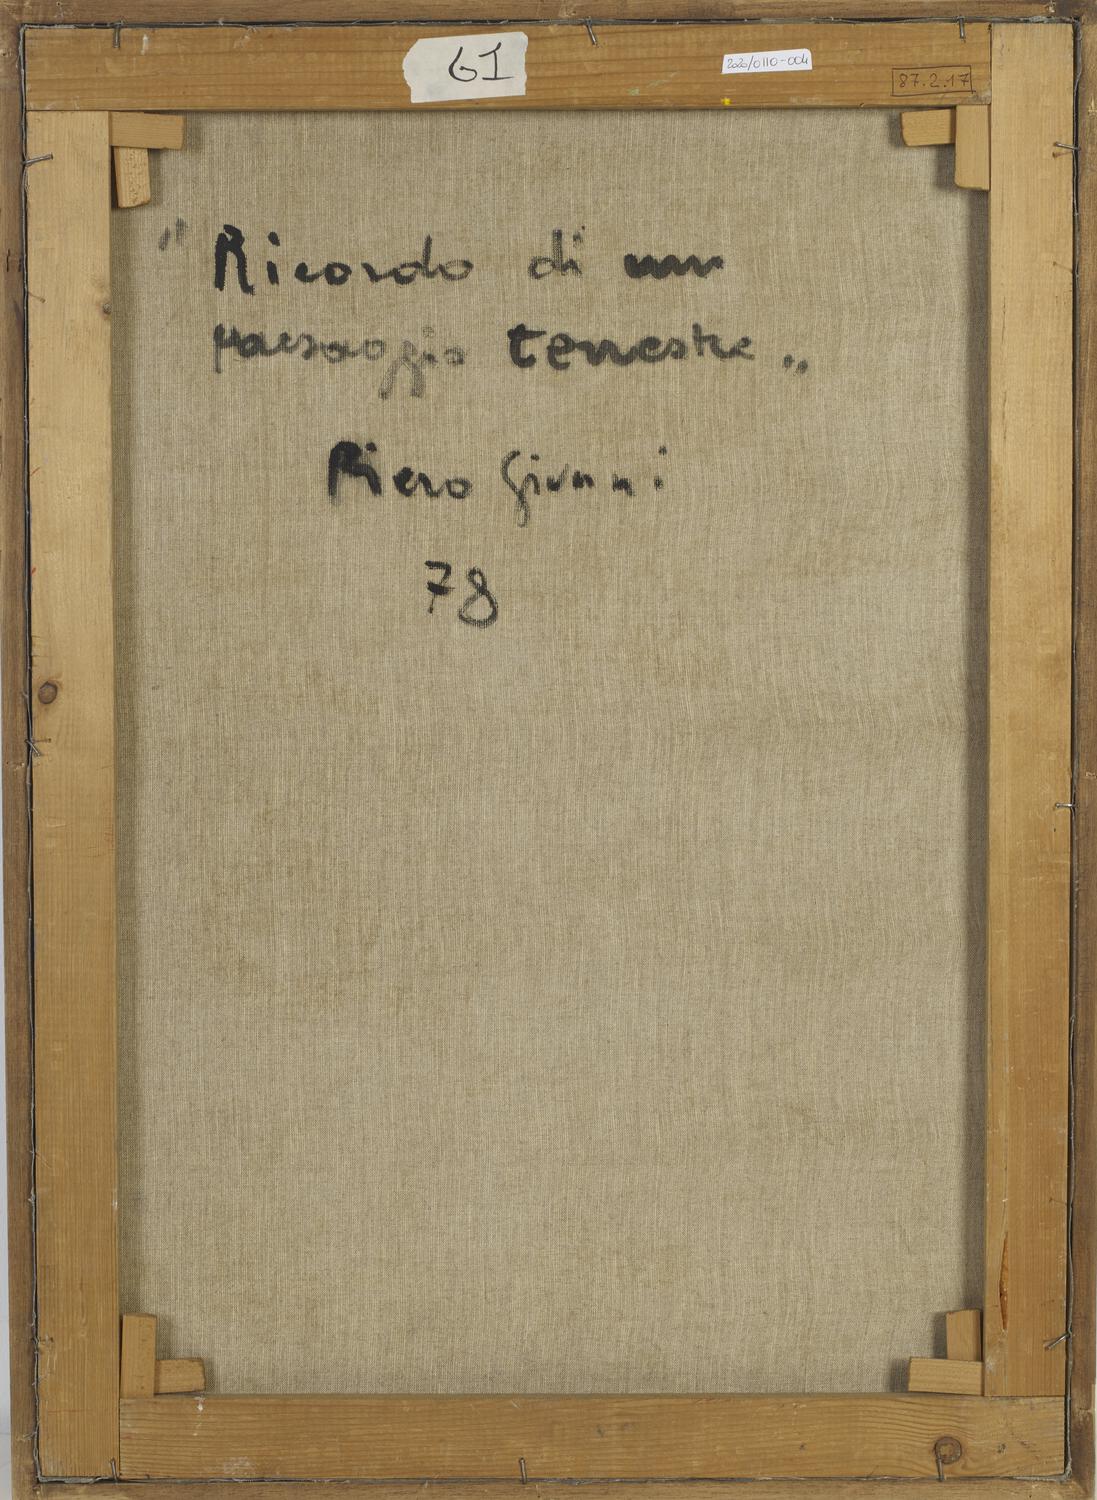 61
2020/0110-004
87.2.17
"Ricordo di un
paesaggio terrestre„
Piero Giunni
78